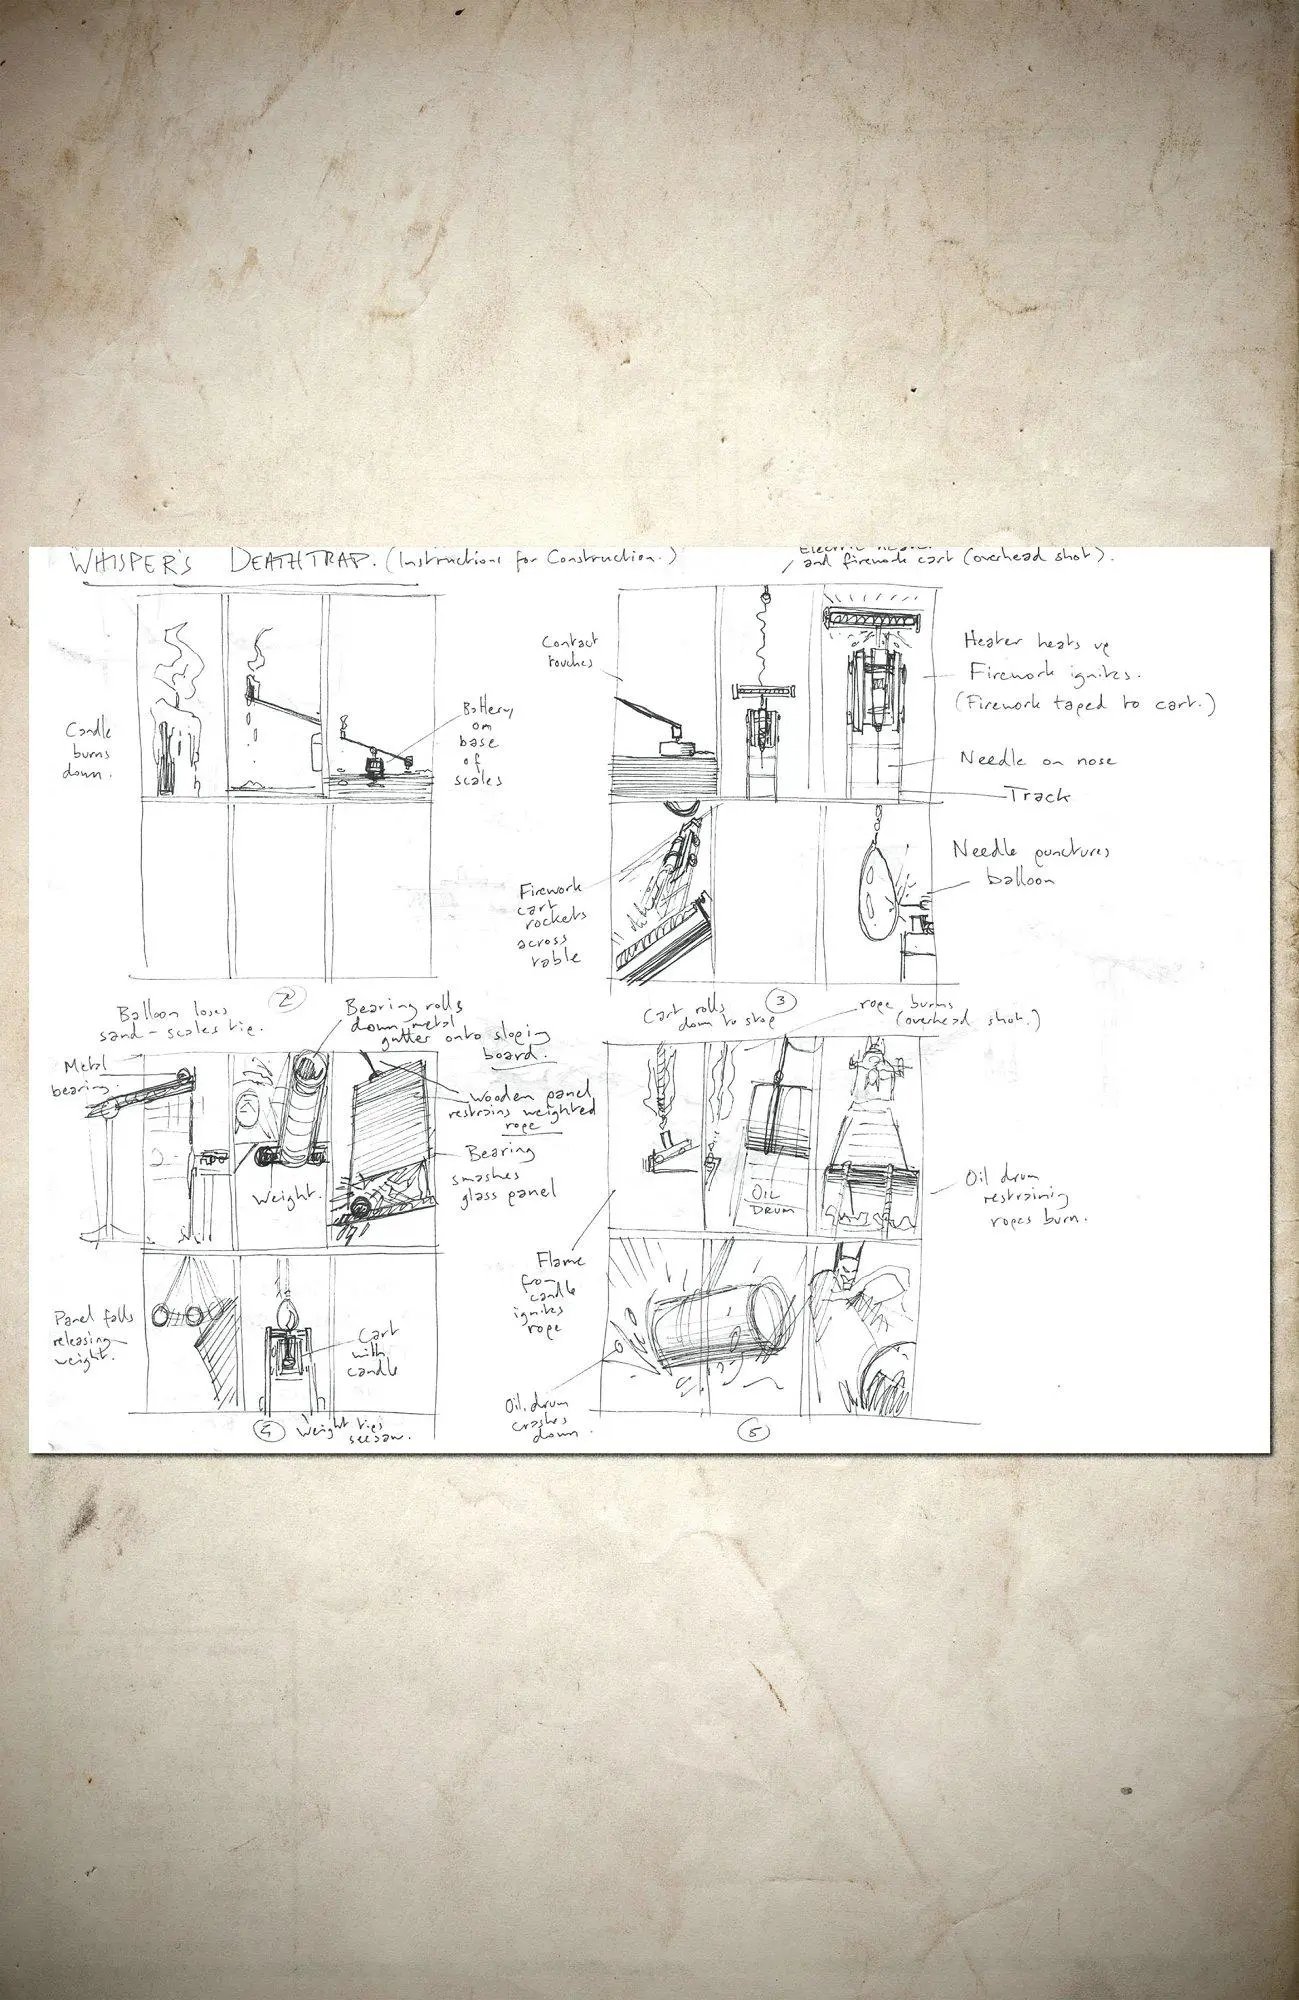 WHISPER'S DEATHTRAP. (Instructions for Construction.)
and firework cart (overhead shot).
Candle
burns
down.
Battery
on
base
of
scales
Contact
touches
Heater heats up
Firework ignites.
(Firework taped to cart.)
Needle on nose
Track
Firework
cart
rockets
across
table
Needle punctures
balloon
2
3
Balloon loses
sand - scales tip.
Metal
bearing.
Bearing rolls
down metal
gutter onto sloping
board.
Wooden panel
restrains weighted
rope
Bearing
smashes
glass panel
Weight.
Panel falls
releasing
weight.
Cart
with
candle
4
Weight tips
seesaw.
Cart rolls
down to stop
rope burns
(overhead shot.)
OIL
DRUM
Oil drum
restraining
ropes burn.
Flame
from
candle
ignites
rope
Oil drum
crashes
down.
5